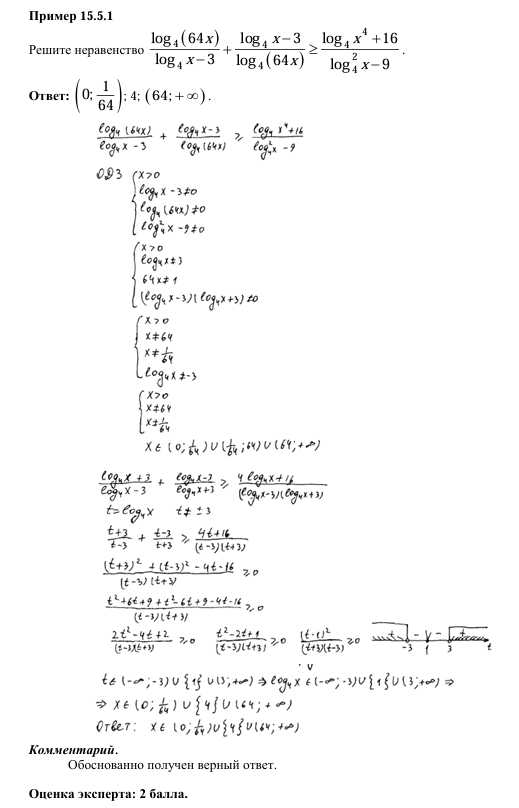 Пример 15.5.1
Решите неравенство log₄(64x)/(log₄x−3) + (log₄x−3)/log₄(64x) ≥ (log₄x⁴+16)/(log₄²x−9) .
Ответ: (0; 1/64); 4; (64;+∞).
log₄(64x)/(log₄x −3) + (log₄x−3)/log₄(64x) ≥ (log₄x⁴+16)/(log₄²x −9)
ОДЗ { x>0
log₄x −3≠0
log₄(64x)≠0
log₄²x −9≠0
{ x>0
log₄x≠3
64x≠1
(log₄x−3)(log₄x+3)≠0
{ x>0
x≠64
x≠1/64
log₄x≠−3
{ x>0
x≠64
x≠1/64
x∈(0; 1/64)∪(1/64; 64)∪(64; +∞)
(log₄x+3)/(log₄x−3) + (log₄x−3)/(log₄x+3) ≥ (4log₄x+16)/((log₄x−3)(log₄x+3))
t=log₄x t≠±3
(t+3)/(t−3) + (t−3)/(t+3) ≥ (4t+16)/((t−3)(t+3))
((t+3)²+(t−3)²−4t−16)/((t−3)(t+3)) ≥0
(t²+6t+9+t²−6t+9−4t−16)/((t−3)(t+3)) ≥0
(2t²−4t+2)/((t−3)(t+3)) ≥0 (t²−2t+1)/((t−3)(t+3)) ≥0 (t−1)²/((t+3)(t−3)) ≥0 + − − + −3 1 3 t
t∈(−∞;−3)∪{1}∪(3;+∞) ⇒ log₄x∈(−∞;−3)∪{1}∪(3;+∞) ⇒
⇒ x∈(0; 1/64)∪{4}∪(64; +∞)
Ответ: x∈(0; 1/64)∪{4}∪(64; +∞)
Комментарий.
Обоснованно получен верный ответ.
Оценка эксперта: 2 балла.